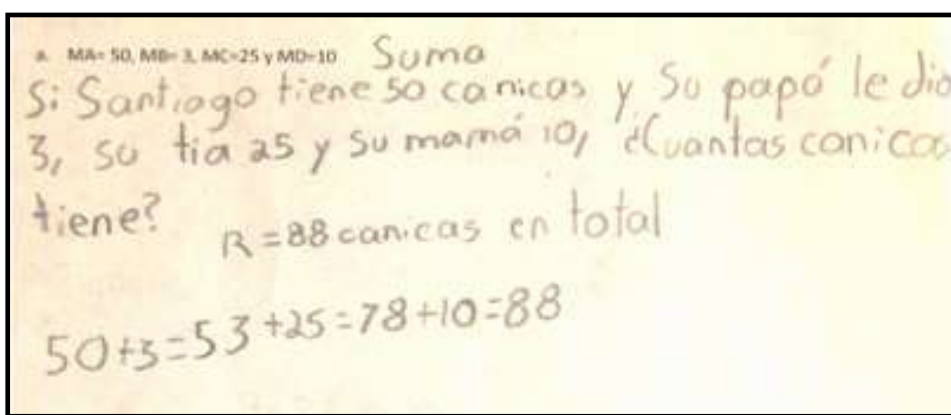 a. MA= 50, MB= 3, MC=25 y MD=10 Suma
Si Santiago tiene 50 canicas y su papá le dio
3, su tia 25 y su mamá 10, ¿Cuantas canicas
tiene?
R = 88 canicas en total
50+3=53+25=78+10=88